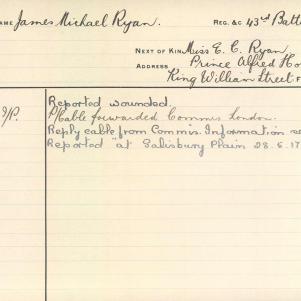 NAME James Michael Ryan. REG. &C 43rd Batt
NEXT OF KIN Miss E. C. Ryan,
ADDRESS Prince Alfred Ho
King William Street
Reported wounded.
P/Cable forwarded Commis London.
Reply cable from Commis. Information re
"Reported at Salisbury Plain 28.6.17